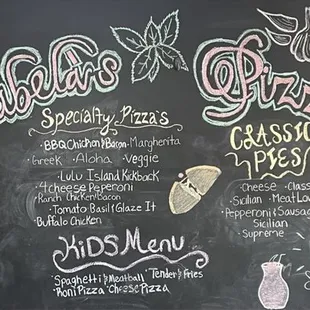 abela's
Specialty Pizza's
BBQ Chicken/Bacon · Margherita
Greek · Aloha · Veggie
Lulu Island Kickback
4 cheese Peperoni
Ranch Chicken/Bacon
Tomato Basil & Glaze It
Buffalo Chicken
KiDS Menu
Spaghetti & Meatball · Tender & fries
Roni Pizza · Cheese Pizza
Pizz
CLASSIC
PIES
Cheese · Class
Sicilian · Meat Lov
Pepperoni & Sausage
Sicilian
Supreme